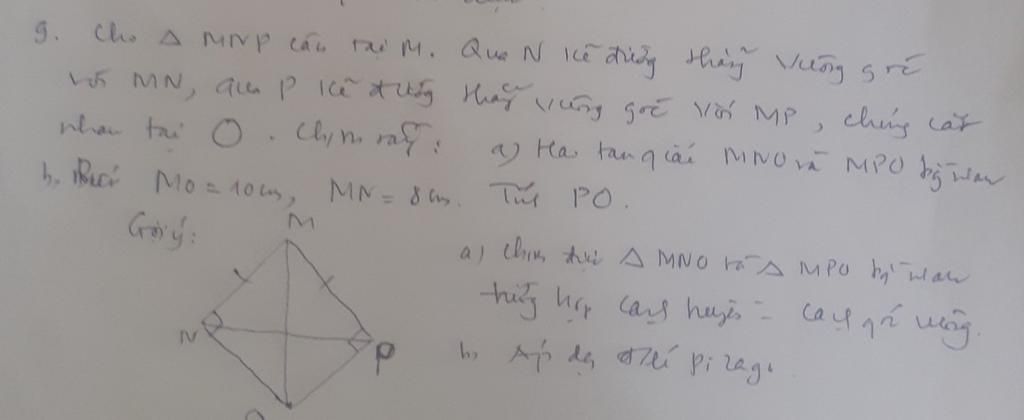 9. Cho Δ MNP cân tại M. Qua N kẻ đường thẳng vuông góc
với MN, qua P kẻ đường thẳng vuông góc với MP, chúng cắt
nhau tại O. Cm rằng: a) Hai tam giác MNO và MPO bằng nhau
b, Biết MO = 10cm, MN = 8cm. Tính PO.
Gợi ý:
M
N
P
a) Chm được Δ MNO và Δ MPO bằng nhau
trường hợp cạnh huyền - cạnh góc vuông.
b, Áp dụng đlí pitago